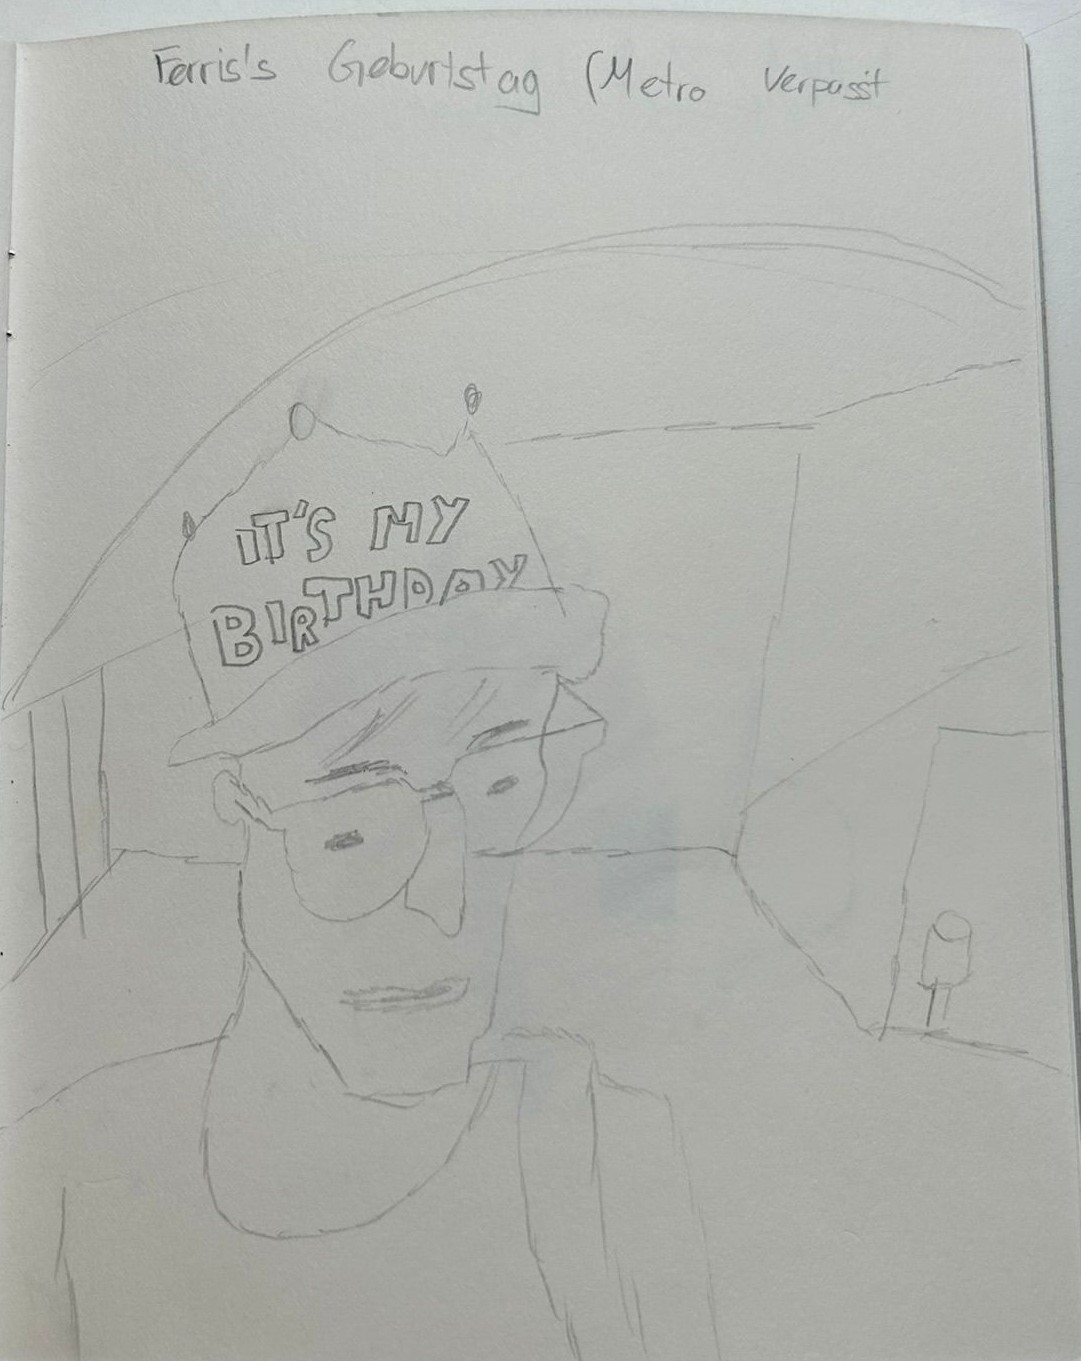 Ferris's Geburtstag (Metro Verpasst
IT'S MY
BIRTHDAY